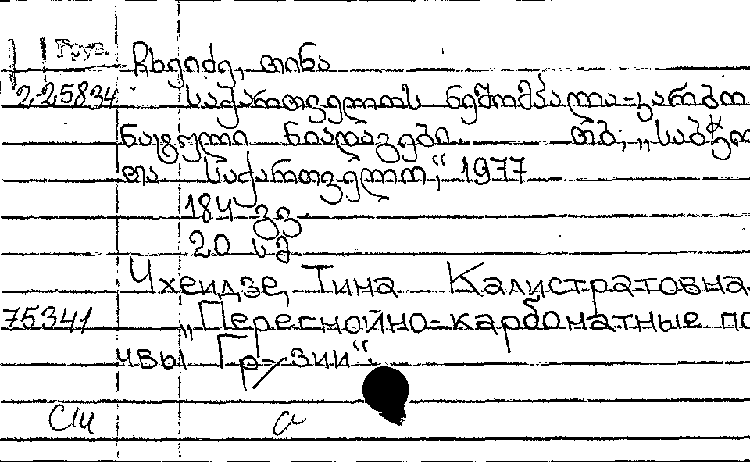 Груз.
ჩხეიძე, თინა
225834 საქართველოს ნეშომპალა-კარბო
ნატული ნიადაგები. თბ., „საბჭო
თა საქართველო“, 1977
184 გვ.
20 სმ
Чхеидзе, Тина Калистратовна
75341 „Перегнойно-карбонатные по
чвы Грузии“.
а